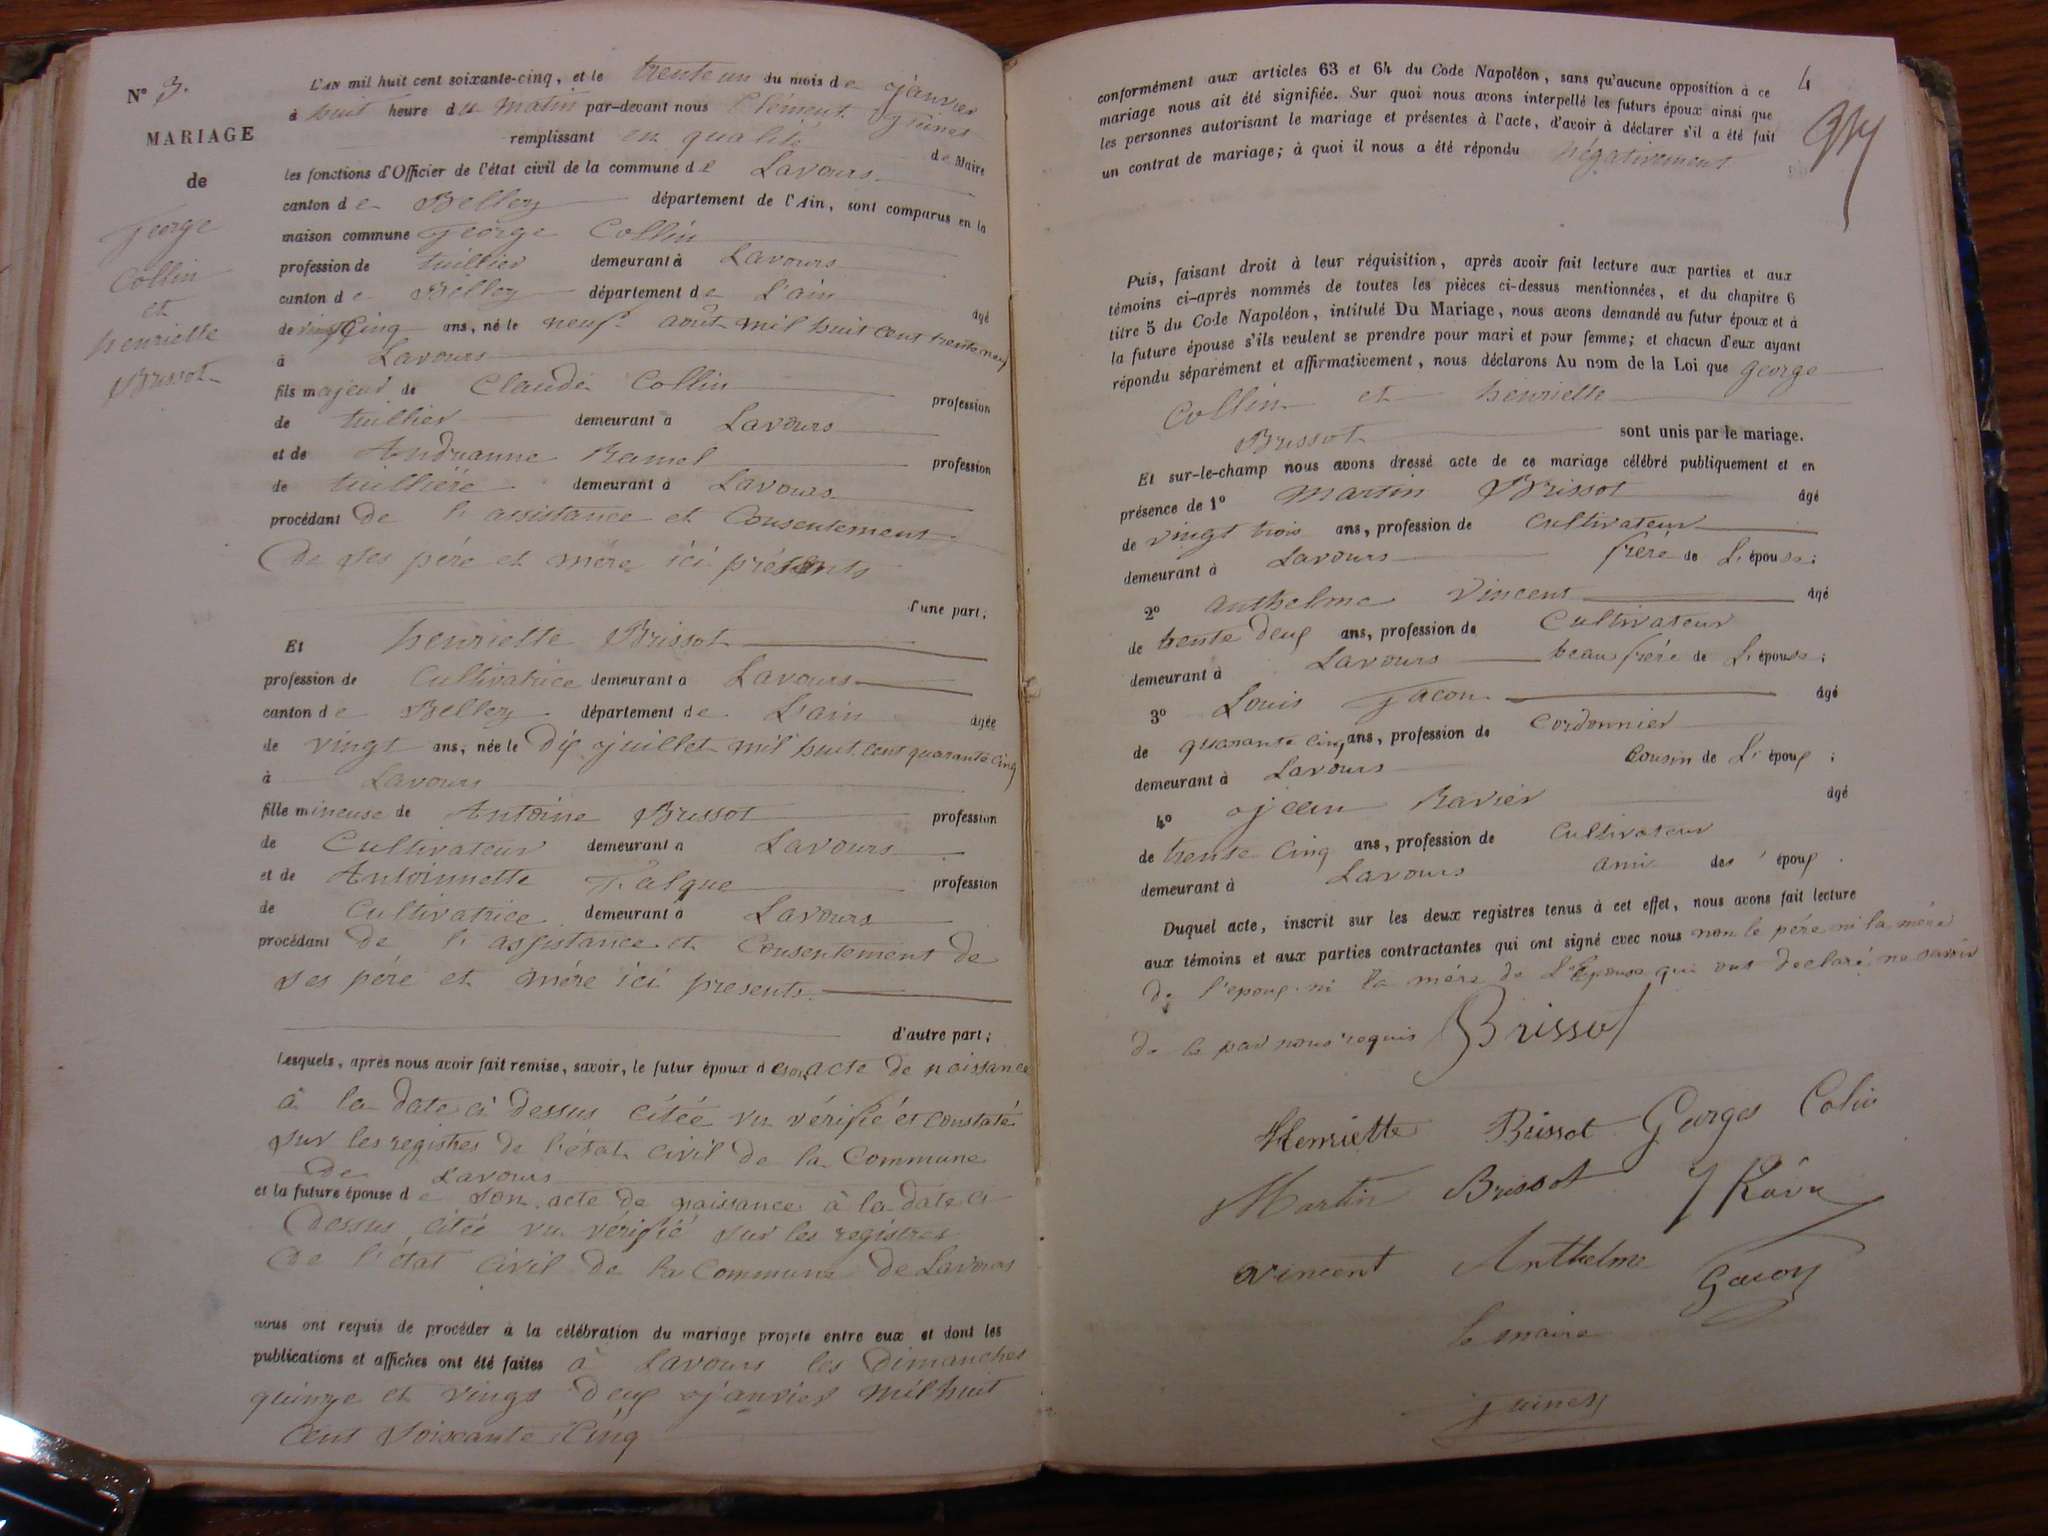 N° 3.
MARIAGE
de
George
Collin
et
henriette
Brissot
L'AN mil huit cent soixante-cinq, et le trente un du mois de janvier
à huit heure du matin par-devant nous Clément
remplissant en qualité de Maire
les fonctions d'Officier de l'état civil de la commune de Lavours
canton de Belley département de l'Ain, sont comparus en la
maison commune George Collin
profession de tuillier demeurant à Lavours
canton de Belley département de L'ain âgé
de vingt Cinq ans, né le neuf août mil huit cent trente neuf
à Lavours
fils majeur de Claude Collin profession
de tuillier demeurant à Lavours
et de Andréanne Ramel profession
de tuillière demeurant à Lavours
procédant de l'assistance et Consentement
de ses père et mère ici présents
d'une part;
Et henriette Brissot
profession de Cultivatrice demeurant à Lavours
canton de Belley département de L'ain âgée
de vingt ans, née le Dix juillet mil huit cent quarante cinq
à Lavours
fille mineuse de Antoine Brissot profession
de Cultivateur demeurant à Lavours
et de Antoinnette Falque profession
de Cultivatrice demeurant à Lavours
procédant de l'assistance et Consentement de
ses père et mère ici presents
d'autre part;
Lesquels, après nous avoir fait remise, savoir, le futur époux de son acte de naissance
à la date ci dessus citée vu vérifié et constaté
sur les registres de l'état civil de la Commune
de Lavours
et la future épouse de son acte de naissance à la date ci
dessus citée vu vérifié sur les registres
de l'état civil de la Commune de Lavours
nous ont requis de procéder à la célébration du mariage projeté entre eux et dont les
publications et affiches ont été faites à Lavours les Dimanches
quinze et vingt deux janvier mil huit
cent soixante cinq
4
conformément aux articles 63 et 64 du Code Napoléon, sans qu'aucune opposition à ce
mariage nous ait été signifiée. Sur quoi nous avons interpellé les futurs époux ainsi que
les personnes autorisant le mariage et présentes à l'acte, d'avoir à déclarer s'il a été fait
un contrat de mariage; à quoi il nous a été répondu négativement
Puis, faisant droit à leur réquisition, après avoir fait lecture aux parties et aux
témoins ci-après nommés de toutes les pièces ci-dessus mentionnées, et du chapitre 6
titre 5 du Code Napoléon, intitulé Du Mariage, nous avons demandé au futur époux et à
la future épouse s'ils veulent se prendre pour mari et pour femme; et chacun d'eux ayant
répondu séparément et affirmativement, nous déclarons Au nom de la Loi que George
Collin et henriette
Brissot sont unis par le mariage.
Et sur-le-champ nous avons dressé acte de ce mariage célébré publiquement et en
présence de 1° Martin Brissot âgé
de vingt trois ans, profession de Cultivateur
demeurant à Lavours frère de L'épouse;
2° Anthelme Vincent âgé
de trente deux ans, profession de Cultivateur
demeurant à Lavours beau frère de L'épouse;
3° Louis Jacon âgé
de quarante cinq ans, profession de Cordonnier
demeurant à Lavours Cousin de L'époux;
4° Jean Ravier âgé
de trente Cinq ans, profession de Cultivateur
demeurant à Lavours ami des époux.
Duquel acte, inscrit sur les deux registres tenus à cet effet, nous avons fait lecture
aux témoins et aux parties contractantes qui ont signé avec nous non le père ni la mère
de l'époux ni la mère de L'Epouse qui ont declaré ne savoir
de ce par nous requis Brissot
Henriette Brissot Georges Colin
Martin Brissot
Vincent Anthelme
le maire